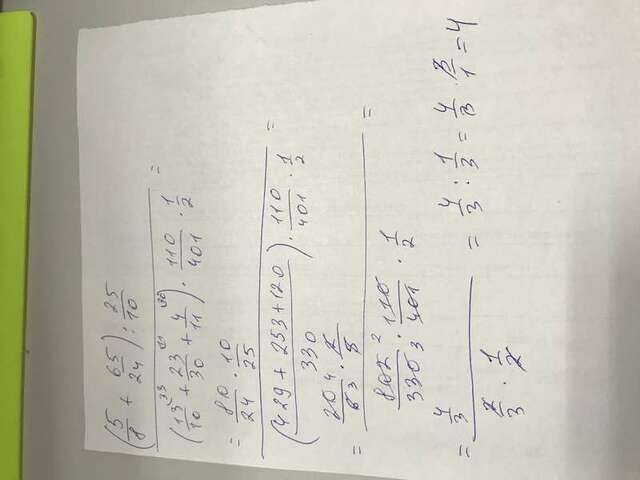 (5/8 + 65/24) : 25/10
(13/10 ³³ + 23/30 ¹¹ + 4/11 ³⁰) · 110/401 · 1/2 =
= 80/24 · 10/25
(429 + 253 + 120 / 330) · 110/401 · 1/2 =
= 20 4/6 3 · 2/5
802 2/330 3 · 110/401 · 1/2 =
= 4/3
2/3 · 1/2 = 4/3 : 1/3 = 4/3 · 3/1 = 4